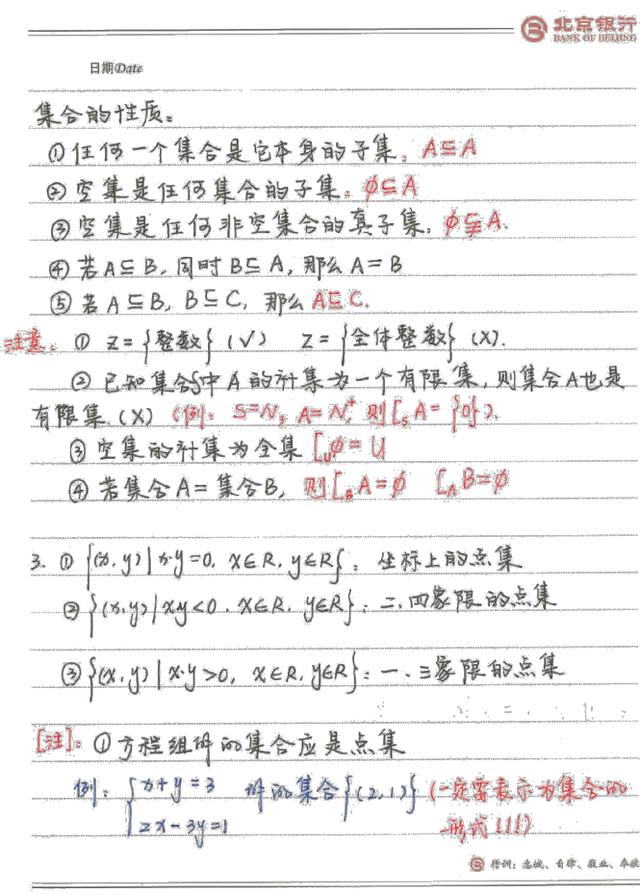 北京银行
BANK OF BEIJING
日期Date
集合的性质:
①任何一个集合是它本身的子集, A⊆A
②空集是任何集合的子集, φ⊆A
③空集是任何非空集合的真子集, φ⫋A.
④若A⊆B, 同时B⊆A, 那么A=B
⑤若A⊆B, B⊆C, 那么A⊆C.
注意: ① Z={整数}(√) Z={全体整数}(X).
②已知集合S中A的补集为一个有限集, 则集合A也是
有限集.(X) (例: S=N, A=N⁺ 则∁ₛA={0}).
③空集的补集为全集 ∁ᵤφ=U
④若集合A=集合B, 则∁ʙA=φ ∁ᴀB=φ
3. ①{(x,y)|x·y=0, x∈R, y∈R}: 坐标上的点集
②{(x,y)|xy<0, x∈R, y∈R}: 二、四象限的点集
③{(x,y)|x·y>0, x∈R, y∈R}: 一、三象限的点集
[注]: ①方程组解的集合应是点集
例: {x+y=3 解的集合{(2,1)} (一定要表示为集合的
2x-3y=1 形式!!!)
行训: 忠诚、自律、敬业、奉献